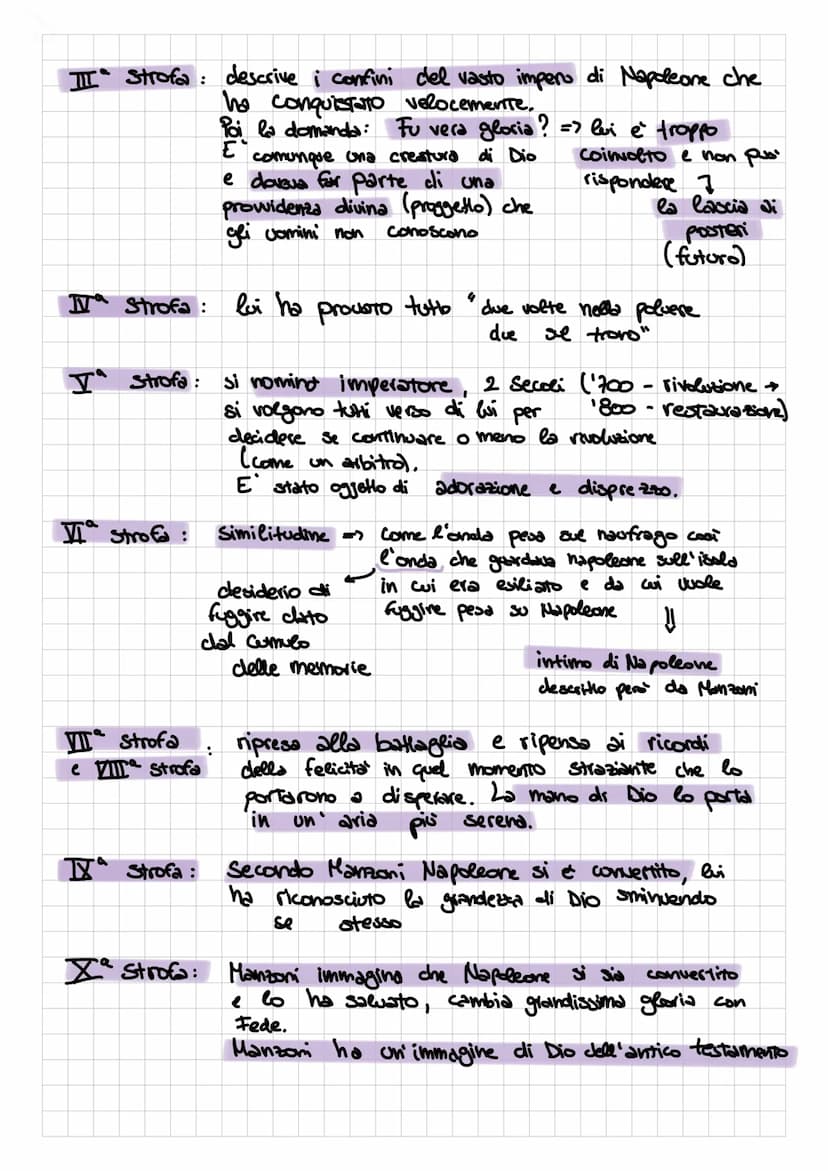 IIIª Strofa : descrive i confini del vasto impero di Napoleone che
ha conquistato velocemente.
Poi la domanda: Fu vera gloria? => lui è troppo
coinvolto e non può
rispondere
la lascia ai
posteri
(futuro)
E' comunque una creatura di Dio
e doveva far parte di una
provvidenza divina (proggetto) che
gli uomini non conoscono
IVª Strofa : lui ha provato tutto "due volte nella polvere
due sul trono"
Vª Strofa : si nominò imperatore, 2 secoli ('700 - rivoluzione →
si volgono tutti verso di lui per '800 - restaurazione)
decidere se continuare o meno la rivoluzione
(come un arbitro).
E' stato oggetto di adorazione e disprezzo.
VIª strofa : Similitudine => Come l'onda pesa sul naufrago così
l'onda che guardava napoleone sull'isola
in cui era esiliato e da cui vuole
fuggire pesa su Napoleone
⇓
desiderio di
fuggire dato
dal cumulo
delle memorie
intimo di Napoleone
descritto però da Manzoni
VIIª strofa
e VIIIª strofa : ripresa alla battaglia e ripensa ai ricordi
della felicità in quel momento straziante che lo
portarono a disperare. La mano di Dio lo porta
in un'aria più serena.
IXª strofa : Secondo Manzoni Napoleone si è convertito, lui
ha riconosciuto la grandezza di Dio sminuendo
se stesso
Xª Strofa : Manzoni immagina che Napoleone si sia convertito
e lo ha salvato, cambia grandissima gloria con
Fede.
Manzoni ha un'immagine di Dio dell'antico testamento